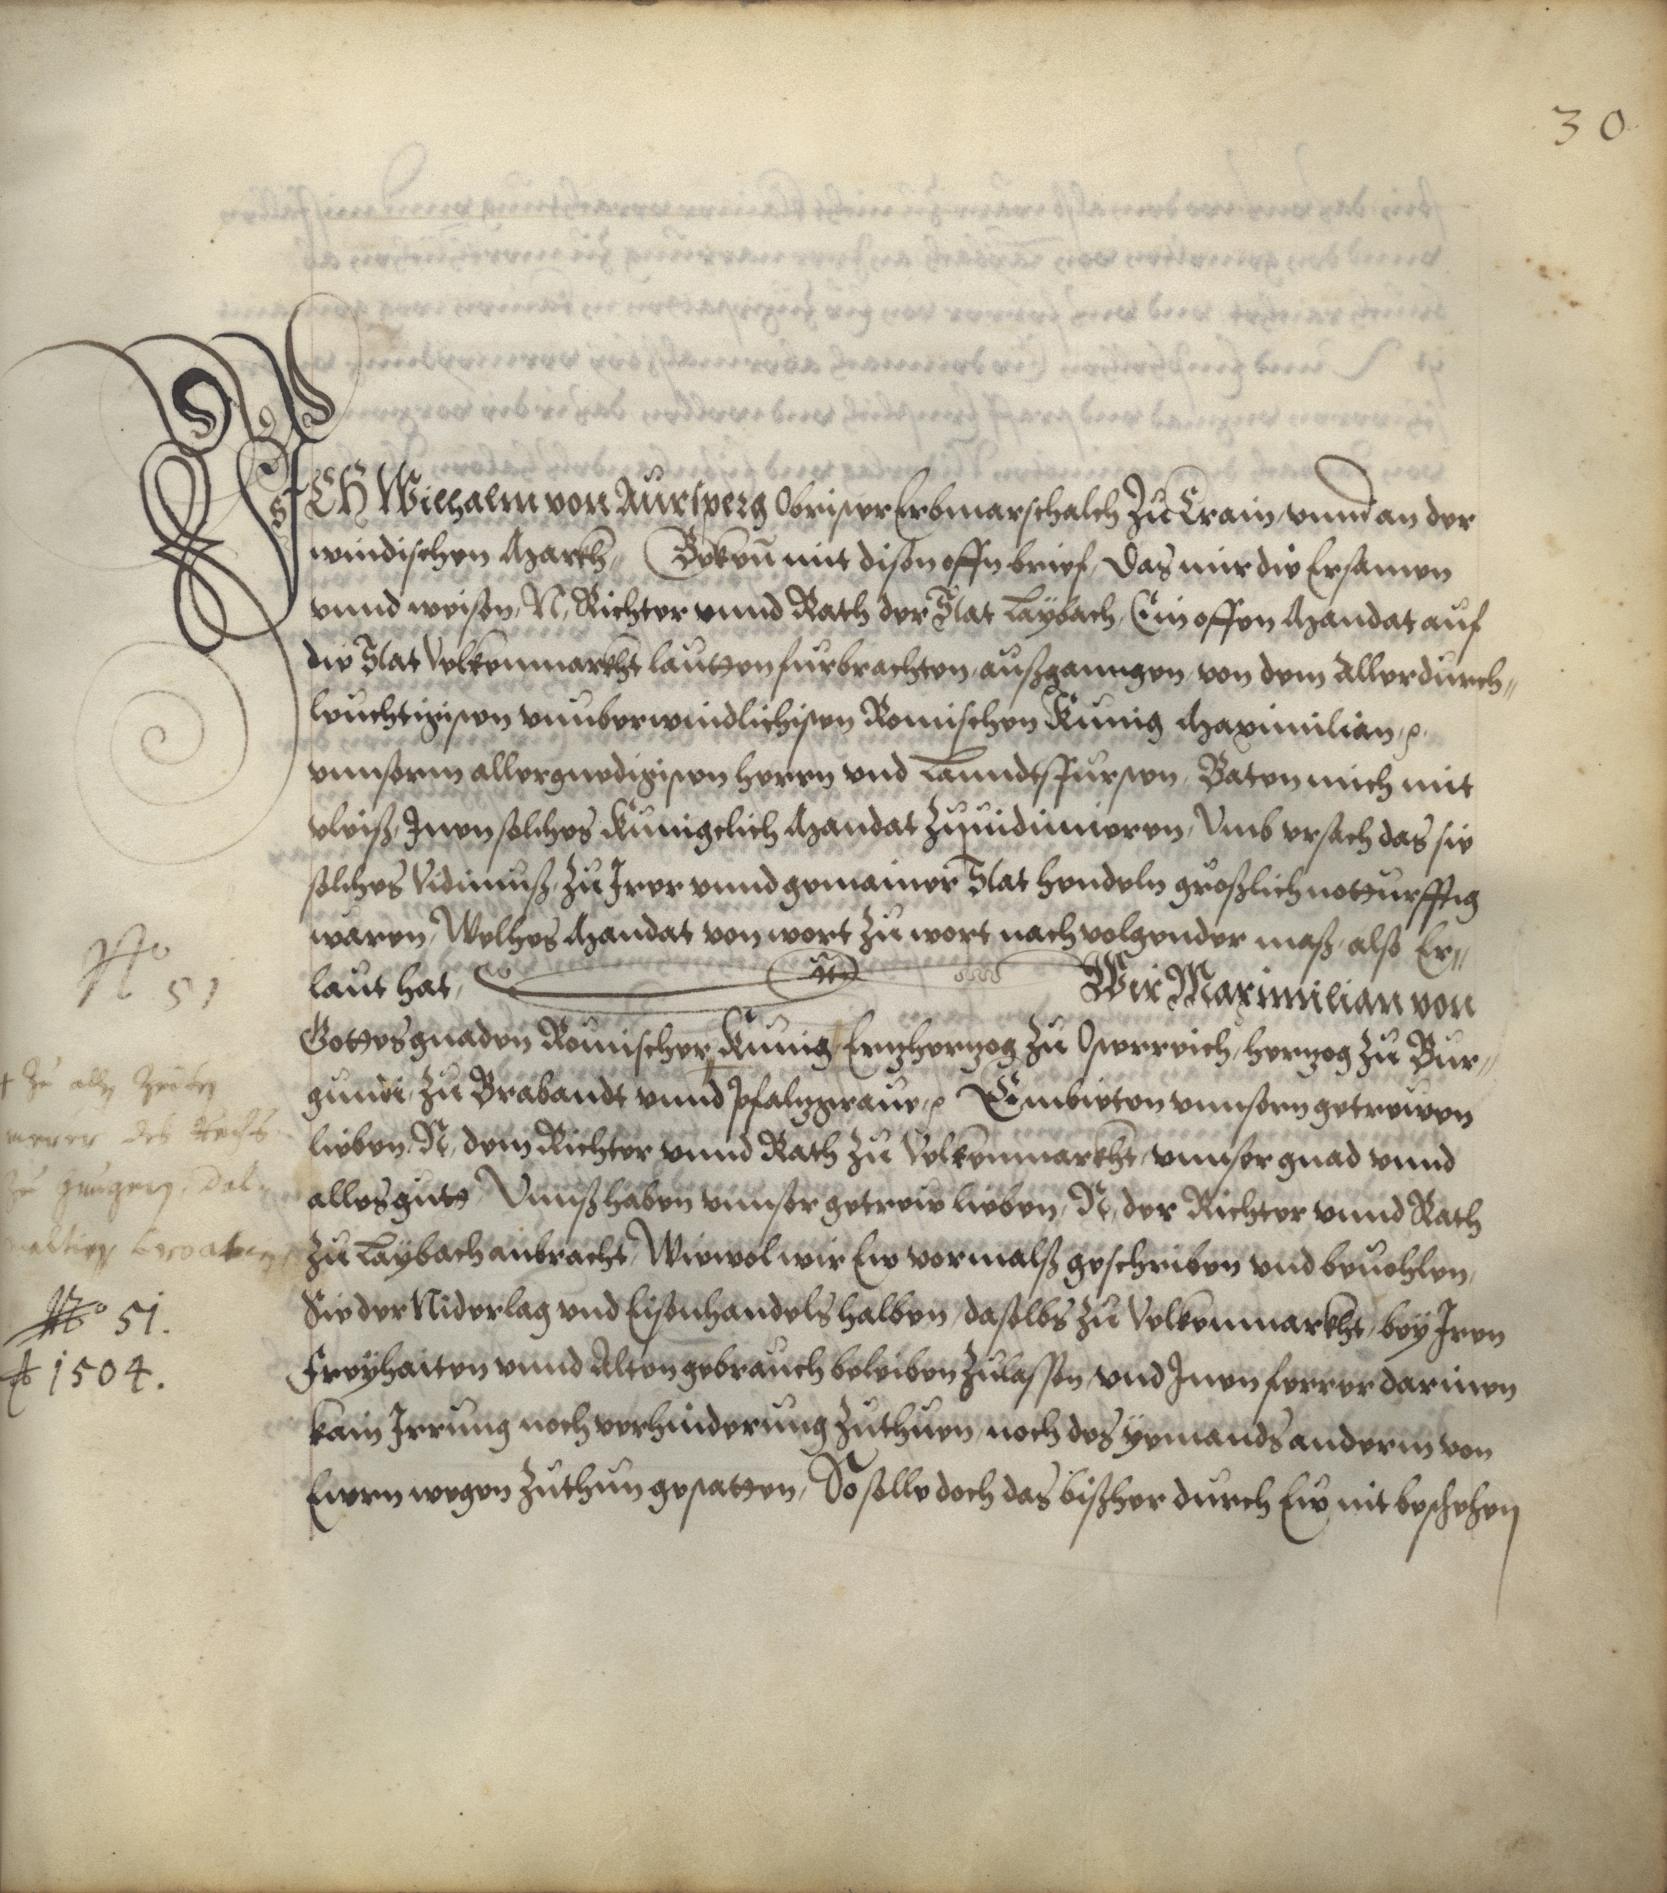 30
ICH Wilhalm von Aursperg Obrister Erbmarschalch Zu Crain, vnnd an der
windischen March, Bekenn mit disen offn brief, Das mir die Ersamen
vnnd weisen, N, Richter vnnd Rath der Stat Laybach, Ein offen Mandat auf
die Stat Volkenmarkht lautten furbrachten, außganngen, von dem Allerdurch„
leuchtigisten vnuberwindlichisten Romischen Kunig Maximilian, ꝛ.
vnnserm allergnedigisten herrn vnd Lanndtsfursten, Baten mich mit
vleiß, Inen solches Kunigclich Mandat Zuuidimieren, Vmb vrsach das sie
solches Vidimuß, Zu Irer vnnd gemainer Stat hendeln großlich notturfftig
waren, Welhes Mandat von wort Zu wort nachuolgender maß, also Er„
laut hat, Wir Maximilian von
Gottes gnaden Romischer Kunig, + Ertzhertzog Zu Osterreich, Hertzog Zu Bur„
gundi, Zu Brabandt vnnd Pfaltzgraue, ꝛ Embieten vnnsern getrewen
lieben, N, dem Richter vnnd Rath Zu Volkenmarkht, vnnser gnad vnnd
alles guts, Vnnß haben vnnser getrew lieben, N, der Richter vnnd Rath
Zu Laybach anbracht, Wiewol wir Ew vormalß geschriben vnd beuohlen,
Sie der Niderlag vnd Eisenhandels halben, daselbs Zu Volkenmarkht, bey Iren
Freyhaiten vnnd Alten gebrauch beleiben Zulassen, vnd Inen ferrer darinen
kain Irrung noch verhinderung Zuthuen, noch des yemands anderm von
Ewern wegen Zuthun gestatten, So solle doch das bißher durch Ew nit beschehen
No 51
+ Zu allen Zeiten
merer des Reichs
Zu Hungern, Dal-
matien Croatien
No 51.
1504.